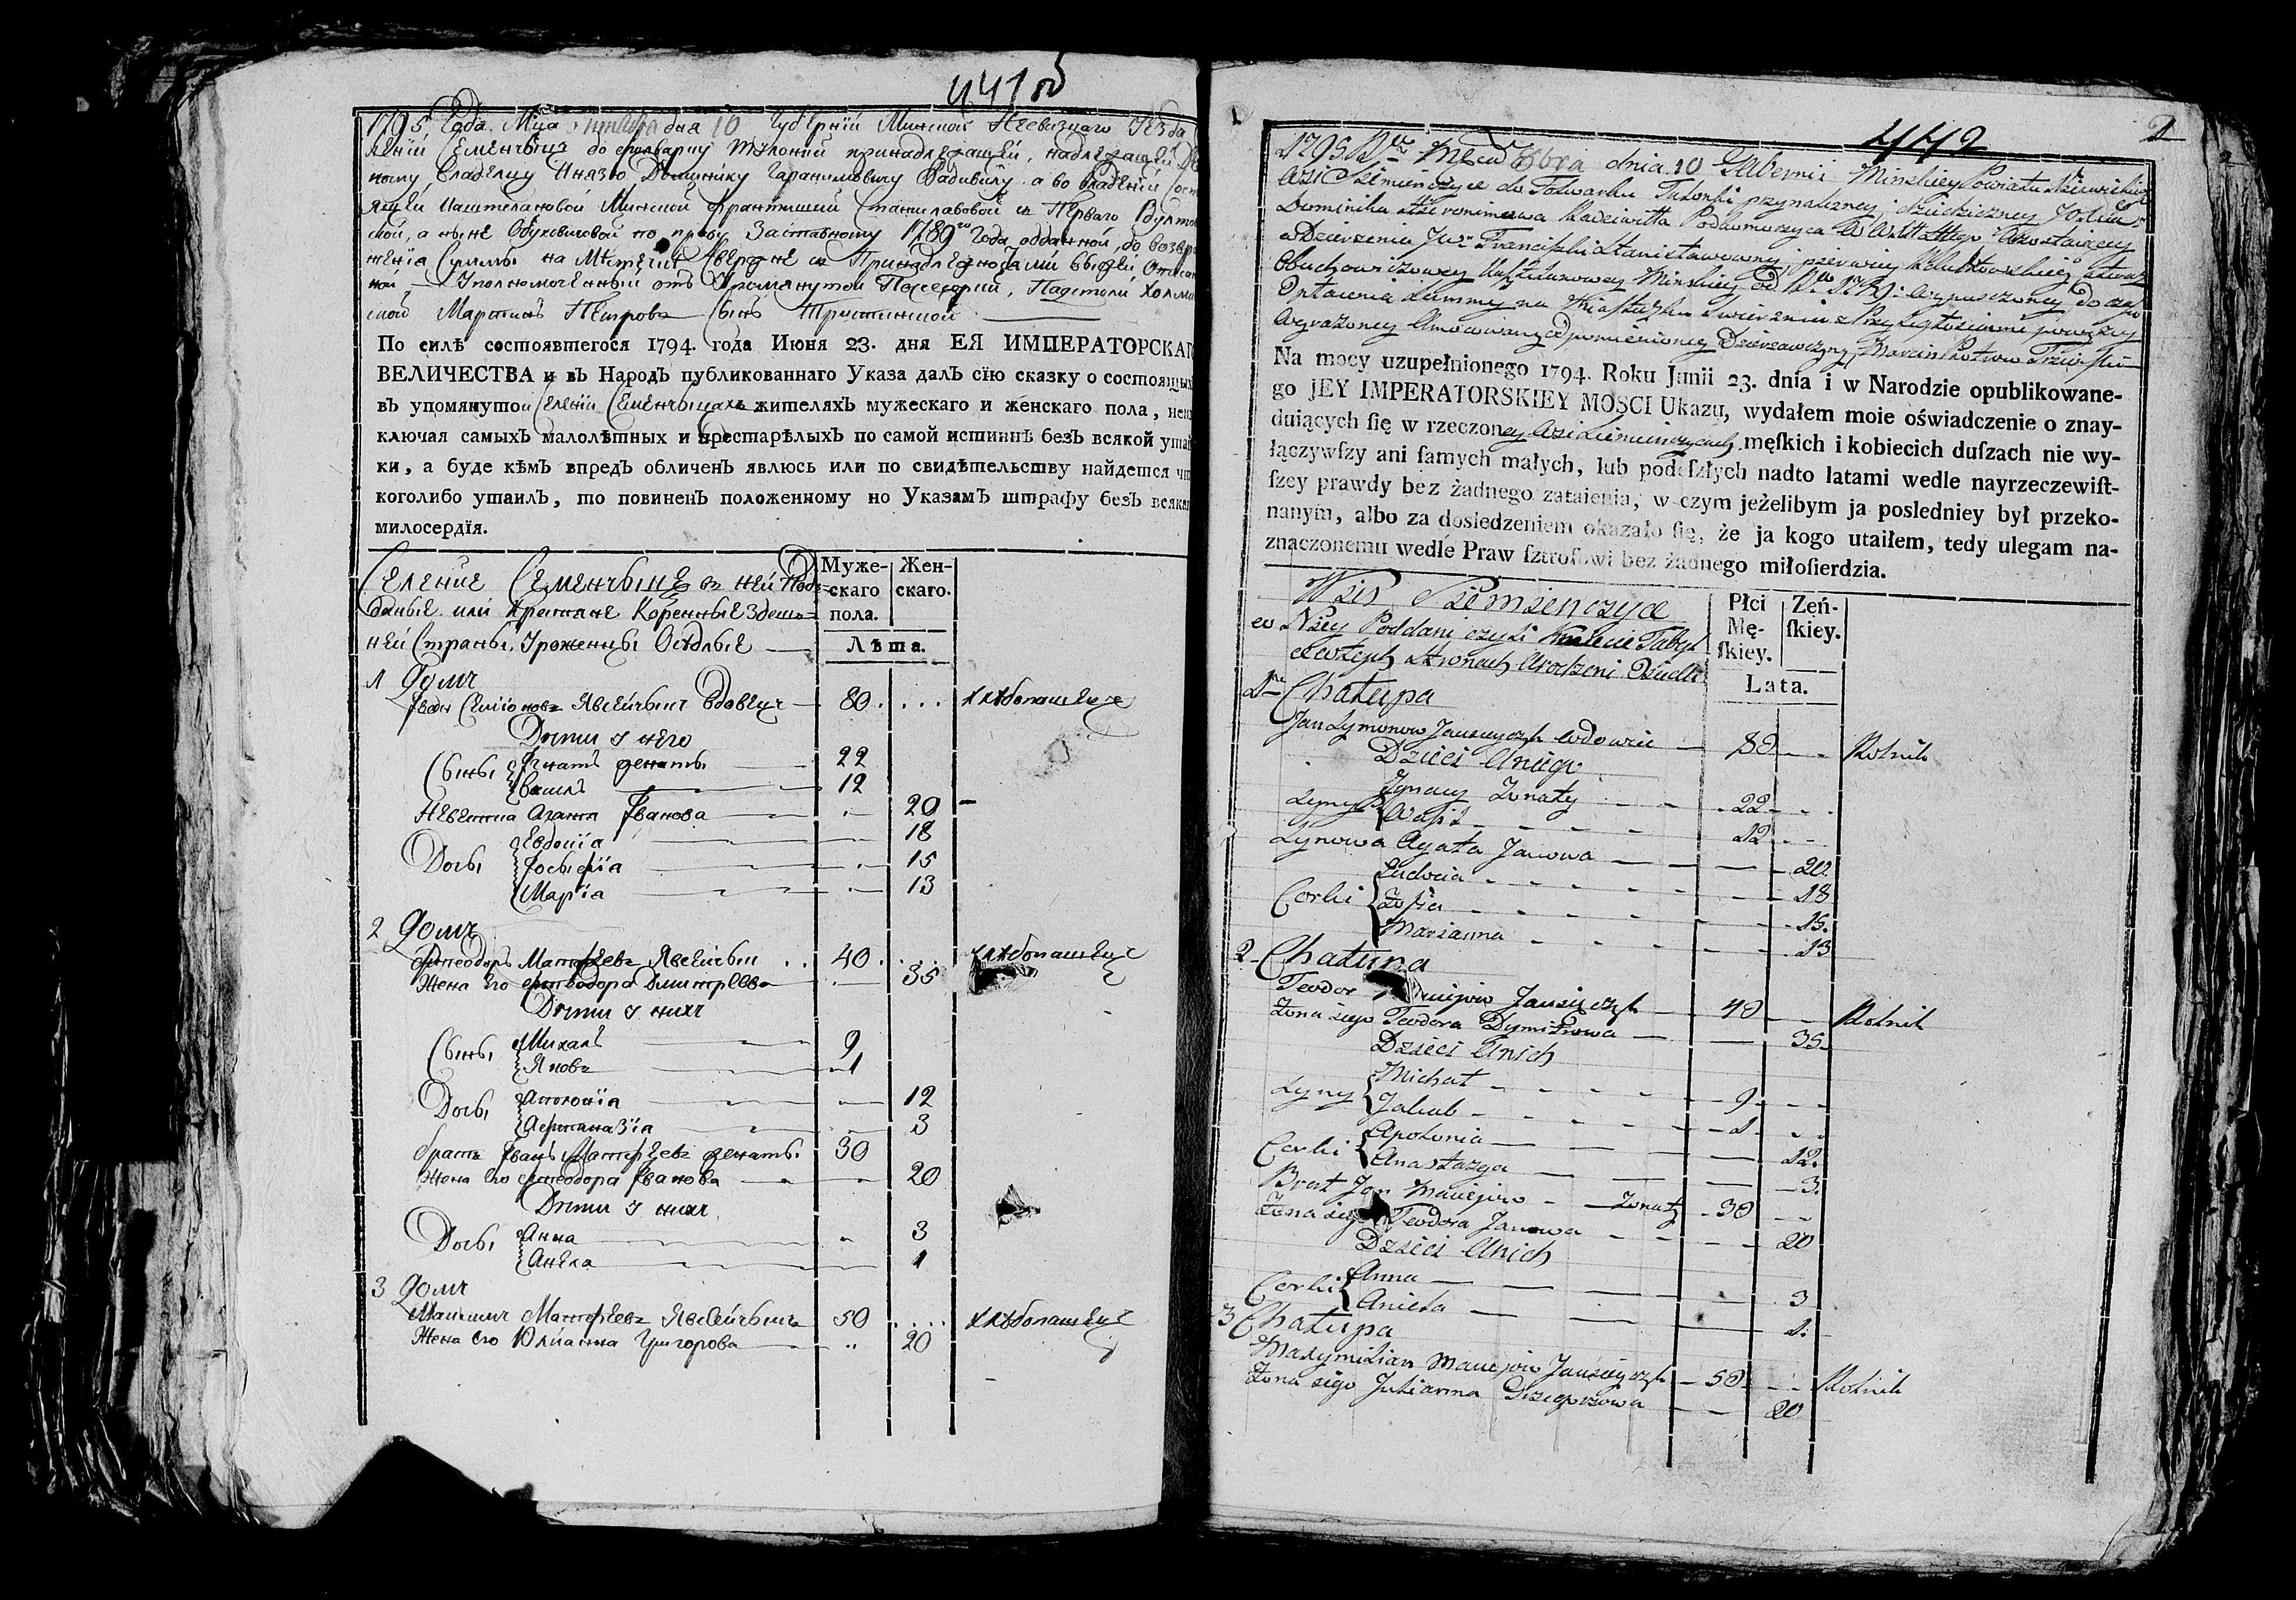 441 об
1795 Года Мца дня 10 Губернїи Минской Несвизкаго Уезда
ленїи Семенчыцъ до фольварку Тулонки принадлежащей, надлежащей
ному Владелцу Князю Доминику Гаранимовичу Радивилу а во владенїи
ящей Каштеляновой Минской Францишки Станиславовой и Перваго
ской, а ныне Обуховичовой по праву Заставному 1789го Года отданной, до возвра
щенїа Суммы на Местечку Свержне и Принадлежностями
ной, Уполномоченный отъ Упомянутой Посесорки,
Мартинъ Петровъ Сынъ
По силѣ состоявшегося 1794. года Июня 23. дня ЕЯ ИМПЕРАТОРСКАГ
ВЕЛИЧЕСТВА и въ Народъ публикованнаго Указа далъ сїю сказку о состоящых
въ упомянутои Селенїи Семенчыцахъ жителяхъ мужескаго и женскаго пола, неи
ключая самыхъ малолѣтныхъ и престарѣлыхъ по самой истиннѣ безъ всякой утай
ки, а буде кѣмъ впредь обличенъ явлюсь или по свидѣтельству найдется чт
коголибо утаилъ, то повиненъ положенному но Указамъ штрафу безъ всякаг
милосердїя.
Селенїе Семенчыцѣ въ ней Под-
даные или Крестяне Коренные Здеш-
ней Страны, Уроженцы Оседлые
Муже-
скаго
пола.
Жен-
скаго.
Лѣта.
1 Домъ
Іванъ Семїоновъ Явсейчыкъ вдовецъ 80 хлѣбопашецъ
Дѣти у него
Сыны Игнатъ женатъ 22
Василь 12
Невестка Агата Іванова 20
Дочь Евдокїа 18
Зосыфїа 15
Марїа 13
2 Домъ
Фтеодоръ Матфѣевъ Явсейчык 40 хлѣбопашецъ
Жена его Фтеодора Дмитрѣева 35
Дѣти у нихъ
Сыны Михалъ 9
Яковъ 1
Дочь Аполонїа 12
Афтаназїа 3
братъ Іванъ Матфѣевъ женатъ 30
Жена его Фтеодора Іванова 20
Дѣти у нихъ
Дочь Анна 3
Анеля 1
3 Домъ
Максимъ Матфѣевъ Явсейчыкъ 50 хлѣбопашецъ
Жена его Юлианна Григорова 20
442
1795 Rku Mca 8bra dnia 10 Gubernii Minskiey Powiatu Nieswizkiego
Wsi Siemienczyce do Folwarku Tulonki przynalezney, dziedziczney
Dominika Hieronimowa Radziwiłła Podkomorzyca
w Dzierzeniu Franciszki Stanisławowny
Obuchowiczowey Kasztelanowey Minskiey od Rku 1789 wypuszczoney do czasu
Opłacenia Summy na Miasteczku Swierzniu z Przyległosciami
wyrażoney Umocowany od pomienioney Dzierzawczyny Marcin
Na mocy uzupełnionego 1794. Roku Junii 23. dnia i w Narodzie opublikowane-
go JEY IMPERATORSKIEY MOSCI Ukazu, wydałem moie oświadczenie o znay-
duiących ſię w rzeczoney Wsi Siemienczycach męſkich i kobiecich duſzach nie wy-
łączywſzy ani ſamych małych, lub podeſzłych nadto latami wedle nayrzeczewiſt-
ſzey prawdy bez żadnego zataienia, w czym jeżelibym ja posledniey był przeko-
nanym, albo za dosledzeniem okazało ſię, że ja kogo utaiłem, tedy ulegam na-
znaczonemu wedle Praw ſztrofowi bez żadnego miłoſierdzia.
Wsis Siemienczyce
w Niey Poddani czyli Kmiecie
tuteyszych Stronach Urodzeni
Płci
Mę-
ſkiey.
Zeń-
ſkiey.
Lata.
1 Chałupa
Jan Symonow Jauseyczyk wdowiec 80 Rolnik
Dzieci Uniego
Syny Jgnacy Żonaty 22
Wasil 12
Synowa Agata Janowa 20
Corki Eudocia 18
Zofia 15
Marianna 13
2 Chałupa
Teodor Jauseyczyk 40 Rolnik
Żona jego Teodora Dymitrowa 35
Dzieci Unich
Syny Michał 9
Jakub 1
Corki Apolonia 12
Anastazya 3
Brat Jan Maciejow Żonaty 30
Żona jego Teodora Janowa 20
Dzieci Unich
Corki Anna 3
Aniela 1
3 Chałupa
Maxymilian Maciejow Jauseyczyk 50 Rolnik
Żona jego Julianna Grzegorzowa 20